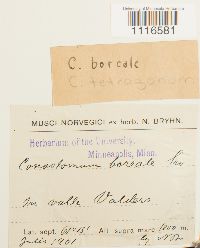 University of Minnesota Herbarium
1116581
C. boreale
C. tetragonum
MUSCI NORVEGICI ex herb. N. BRYHN.
Herbarium of the University,
Minneapolis, Minn.
Conostomum boreale Sw.
In valle Valders.
Lat. sept. 61°15'. Alt. supra mare 1000 m.
Julio 1901.